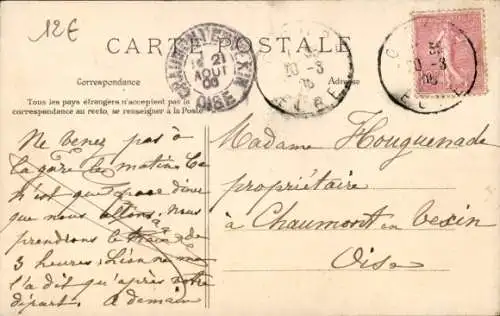 12€
CARTE POSTALE
CHAUMONT-EN-VEXIN
21
AOUT
OISE
EURE
10 - 3
Correspondance
Adresse
Tous les pays étrangers n'acceptent pas la
correspondance au recto, se renseigner à la Poste
Ne venez pas à
la gare le matin. Ce
n'est que pour dîner
que nous allons, nous
prendrons le train de
3 heures; Léonne ne me
l'a dit qu'après votre
départ. A demain
Madame Houguenade
propriétaire
à Chaumont en Vexin
Oise